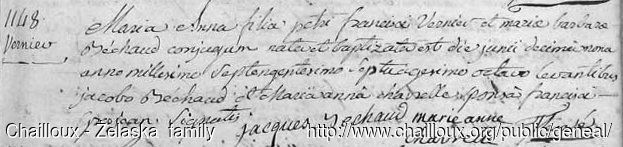 1148 Maria Anna filia petri francisci Vernier et mariæ barbaræ
Vernier Béchaud conjugum nata et baptizata est die junii decima nona
anno millesimo septengentesimo septuagesimo octavo levantibus
jacobo Béchaud et Maria anna sponsa francisci
signatis jacques Béchaud marie anne
Chailloux - Zelaska family http://www.chailloux.org/public/geneal/